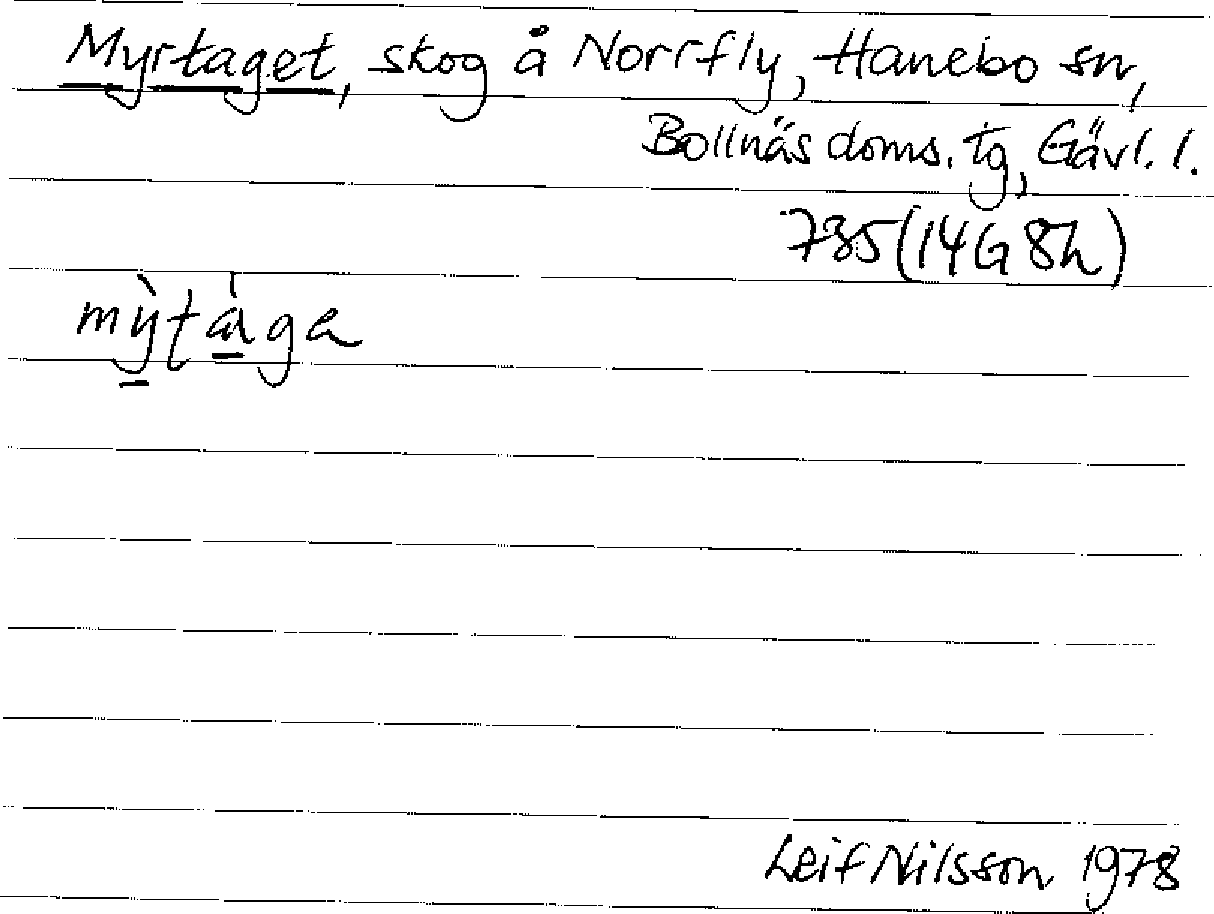 Myrtaget, skog å Norrfly, Hanebo sn,
Bollnäs doms. tg, Gävl. l.
735 (14G 8h)
mỳtàga
Leif Nilsson 1978